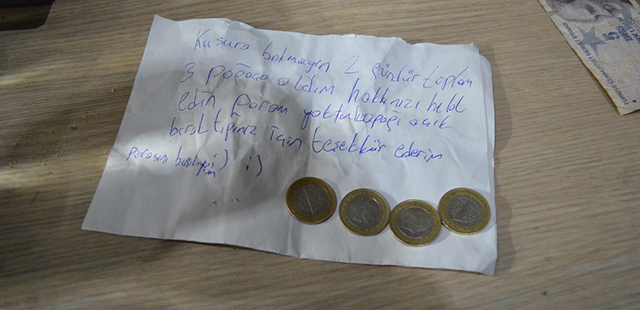 Kusura bakmayın 2 gündür toplam
3 poğaça aldım hakkınızı helal
edin param yoktu kapağı açık
bıraktığınız için teşekkür ederim
parasını bıraktım :) :)